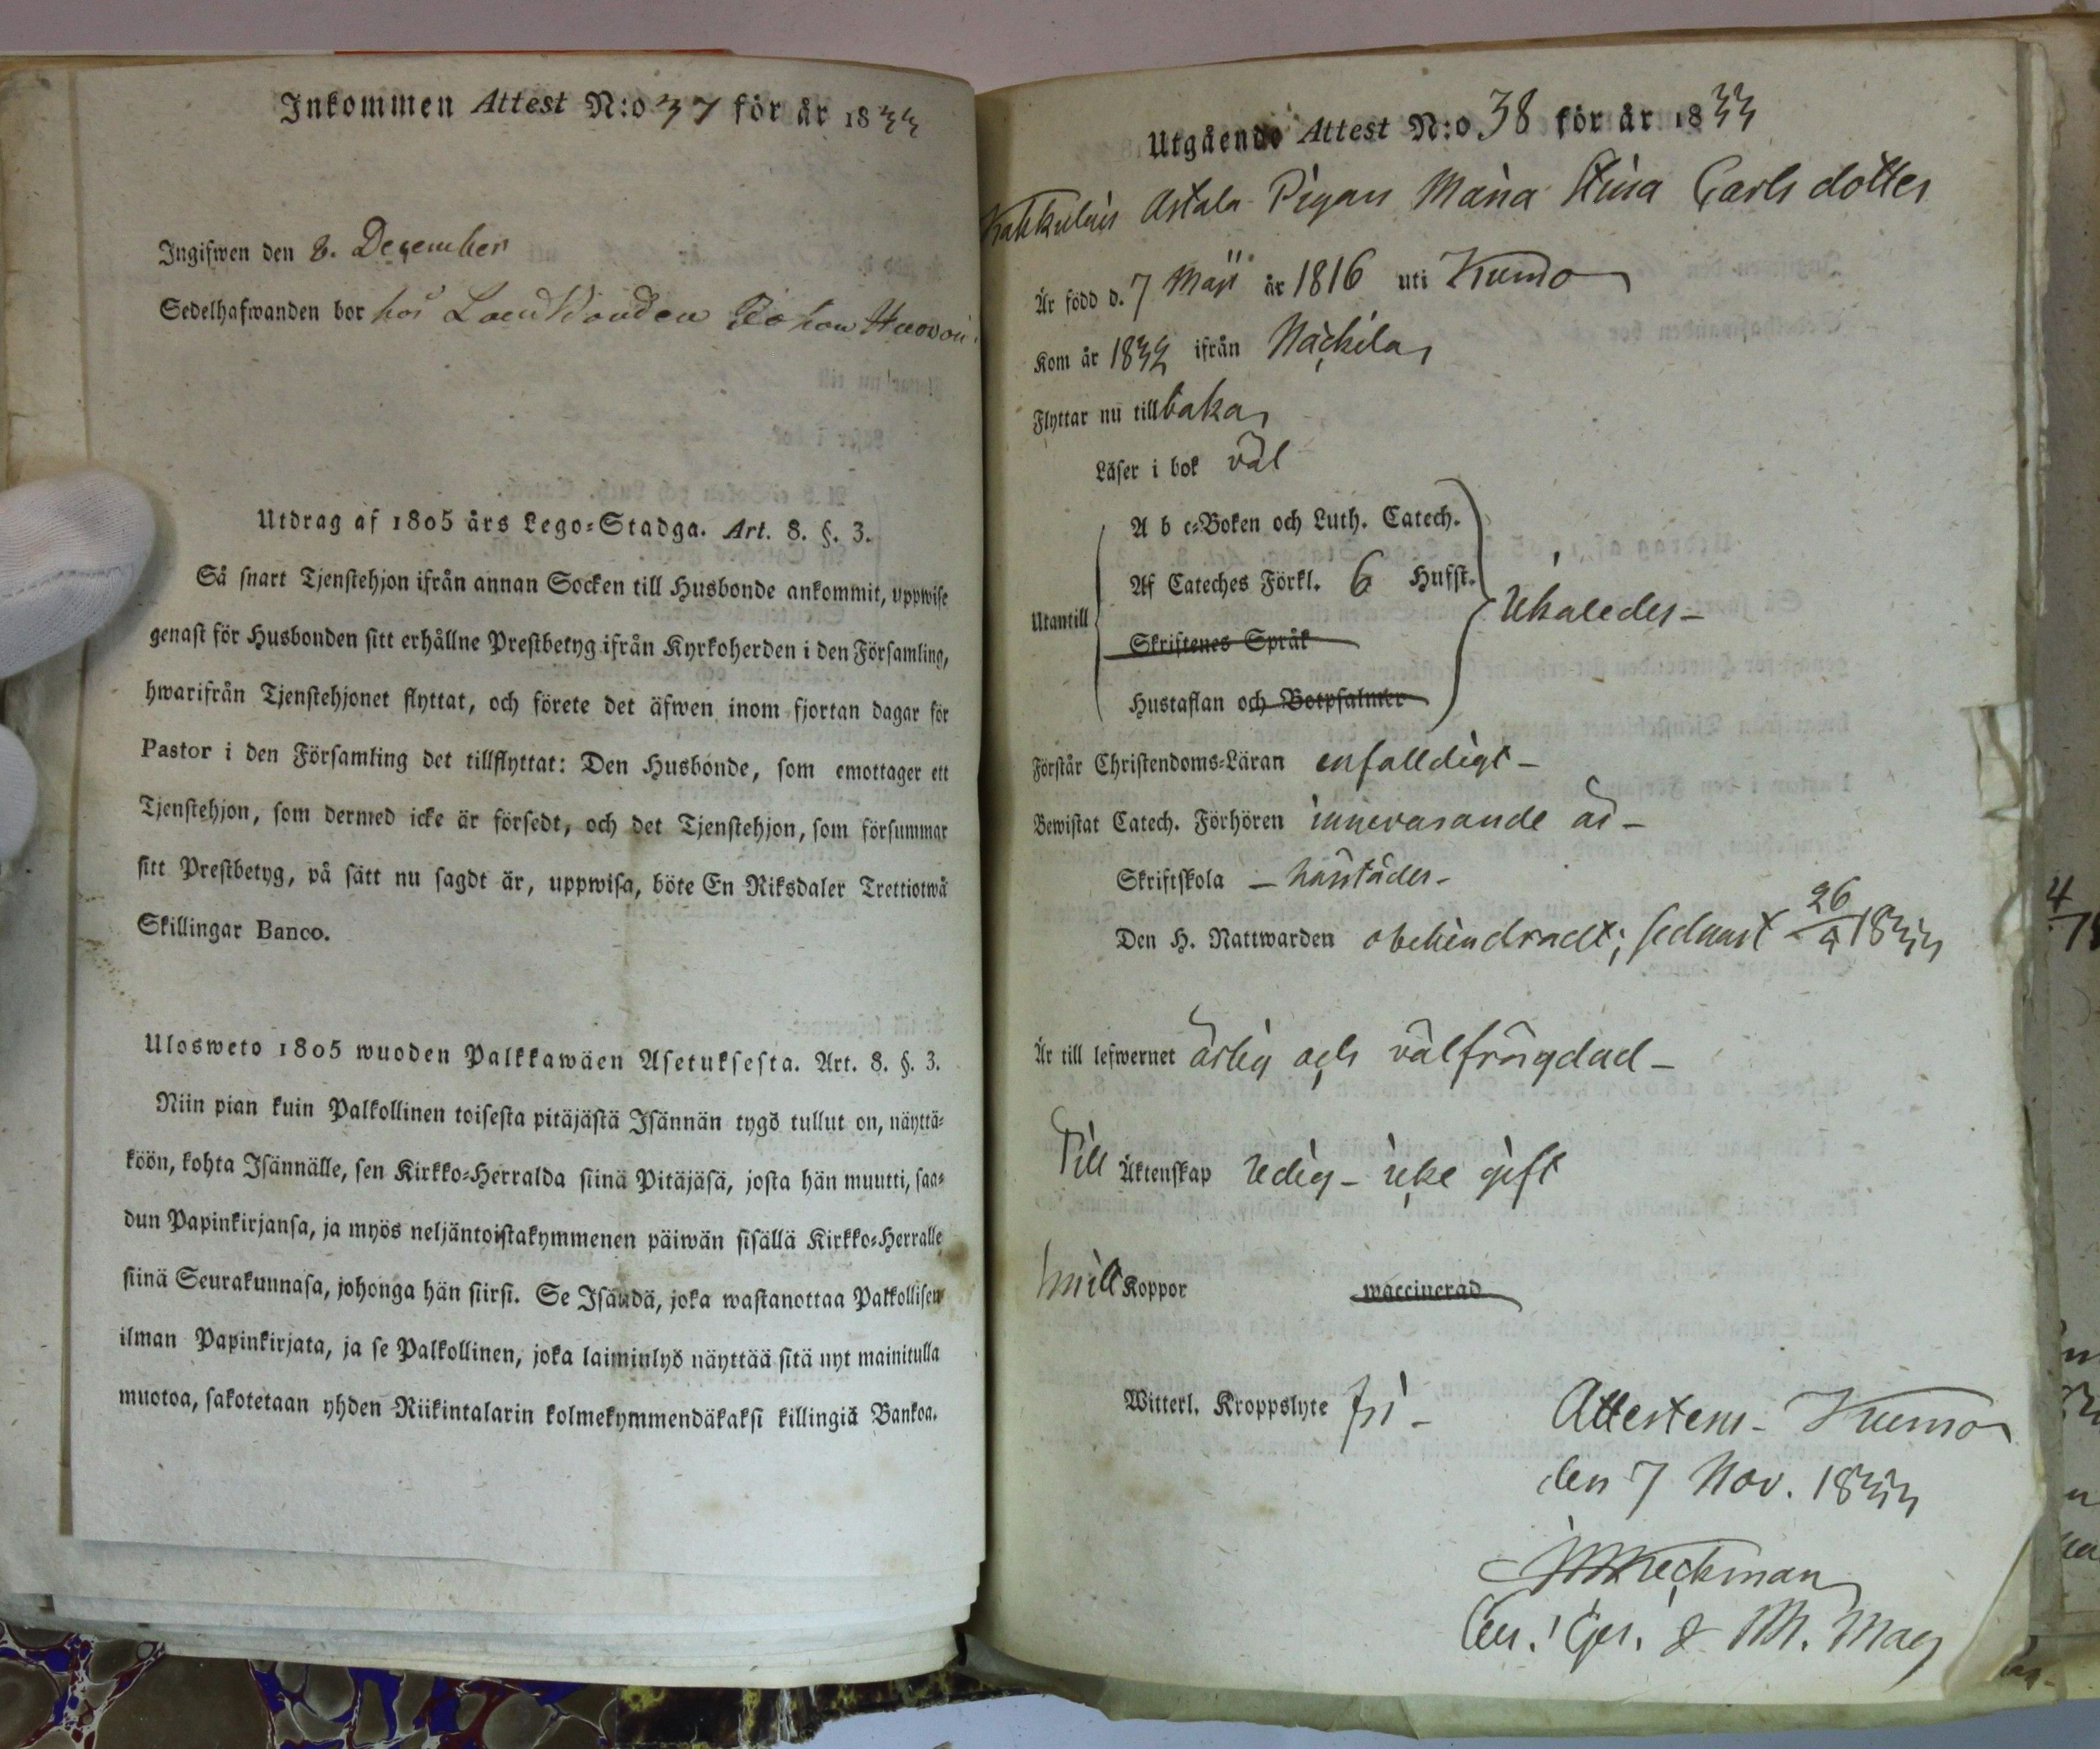 Inkommen Attest N:o 37 för år 1833
Ingifwen den 8. December
Sedelhafwanden bor hos Landbonden Johan
Utdrag af 1805 års Lego-Stadga. Art. 8. §. 3.
Så snart Tjenstehjon ifrån annan Socken till Husbonde ankommit, uppwise
genast för Husbonden sitt erhållne Prestbetyg ifrån Kyrkoherden i den Församling,
hwarifrån Tjenstehjonet flyttat, och förete det äfwen inom fjortan dagar för
Pastor i den Församling det tillflyttat: Den Husbonde, som emottager ett
Tjenstehjon, som dermed icke är försedt, och det Tjenstehjon, som försummar
sitt Prestbetyg, på sätt nu sagdt är, uppwisa, böte En Riksdaler Trettiotwå
Skillingar Banco.
Ulosweto 1805 wuoden Palkkawäen Asetuksesta. Art. 8. §. 3.
Niin pian kuin Palkollinen toisesta pitäjästä Isännän tygö tullut on, näyttä-
köön, kohta Isännälle, sen Kirkko-Herralda siinä Pitäjäsä, josta hän muutti, saa-
dun Papinkirjansa, ja myös neljäntoistakymmenen päiwän sisällä Kirkko-Herralle
siinä Seurakunnasa, johonga hän siirsi. Se Isändä, joka wastanottaa Palkollisen
ilman Papinkirjata, ja se Palkollinen, joka laiminlyö näyttää sitä nyt mainitulla
muotoa, sakotetaan yhden Riikintalarin kolmekymmendäkaksi killingiä Bankoa.
Utgående Attest N:o 38 för år 1833
Kakkulais Astala Pigan Maria Stina Carlsdotter
Är född d. 7 Maji år 1816 uti Kumo
Kom år 1832 ifrån Nackila
Flyttar nu tillbaka
Läser i bok väl
A b c-Boken och Luth. Catech.
Af Cateches Förkl. 6 Hufst.
Utantill
Likaledes -
Skriftenes Språk
Hustaflan och Botpsalmer
Förstår Christendoms-Läran enfalldigt -
Bewistat Catech. Förhören innevarande år -
Skriftskola - härstädes -
Den H. Nattwarden obehindradt; sednast 26/9 1833
Är till lefwernet ärlig och välfrägdad -
Till Äktenskap ledig - icke gift
haft Koppor waccinerad
Witterl. Kroppslyte fri -
Attesteras - Kumo
den 7 Nov. 1833